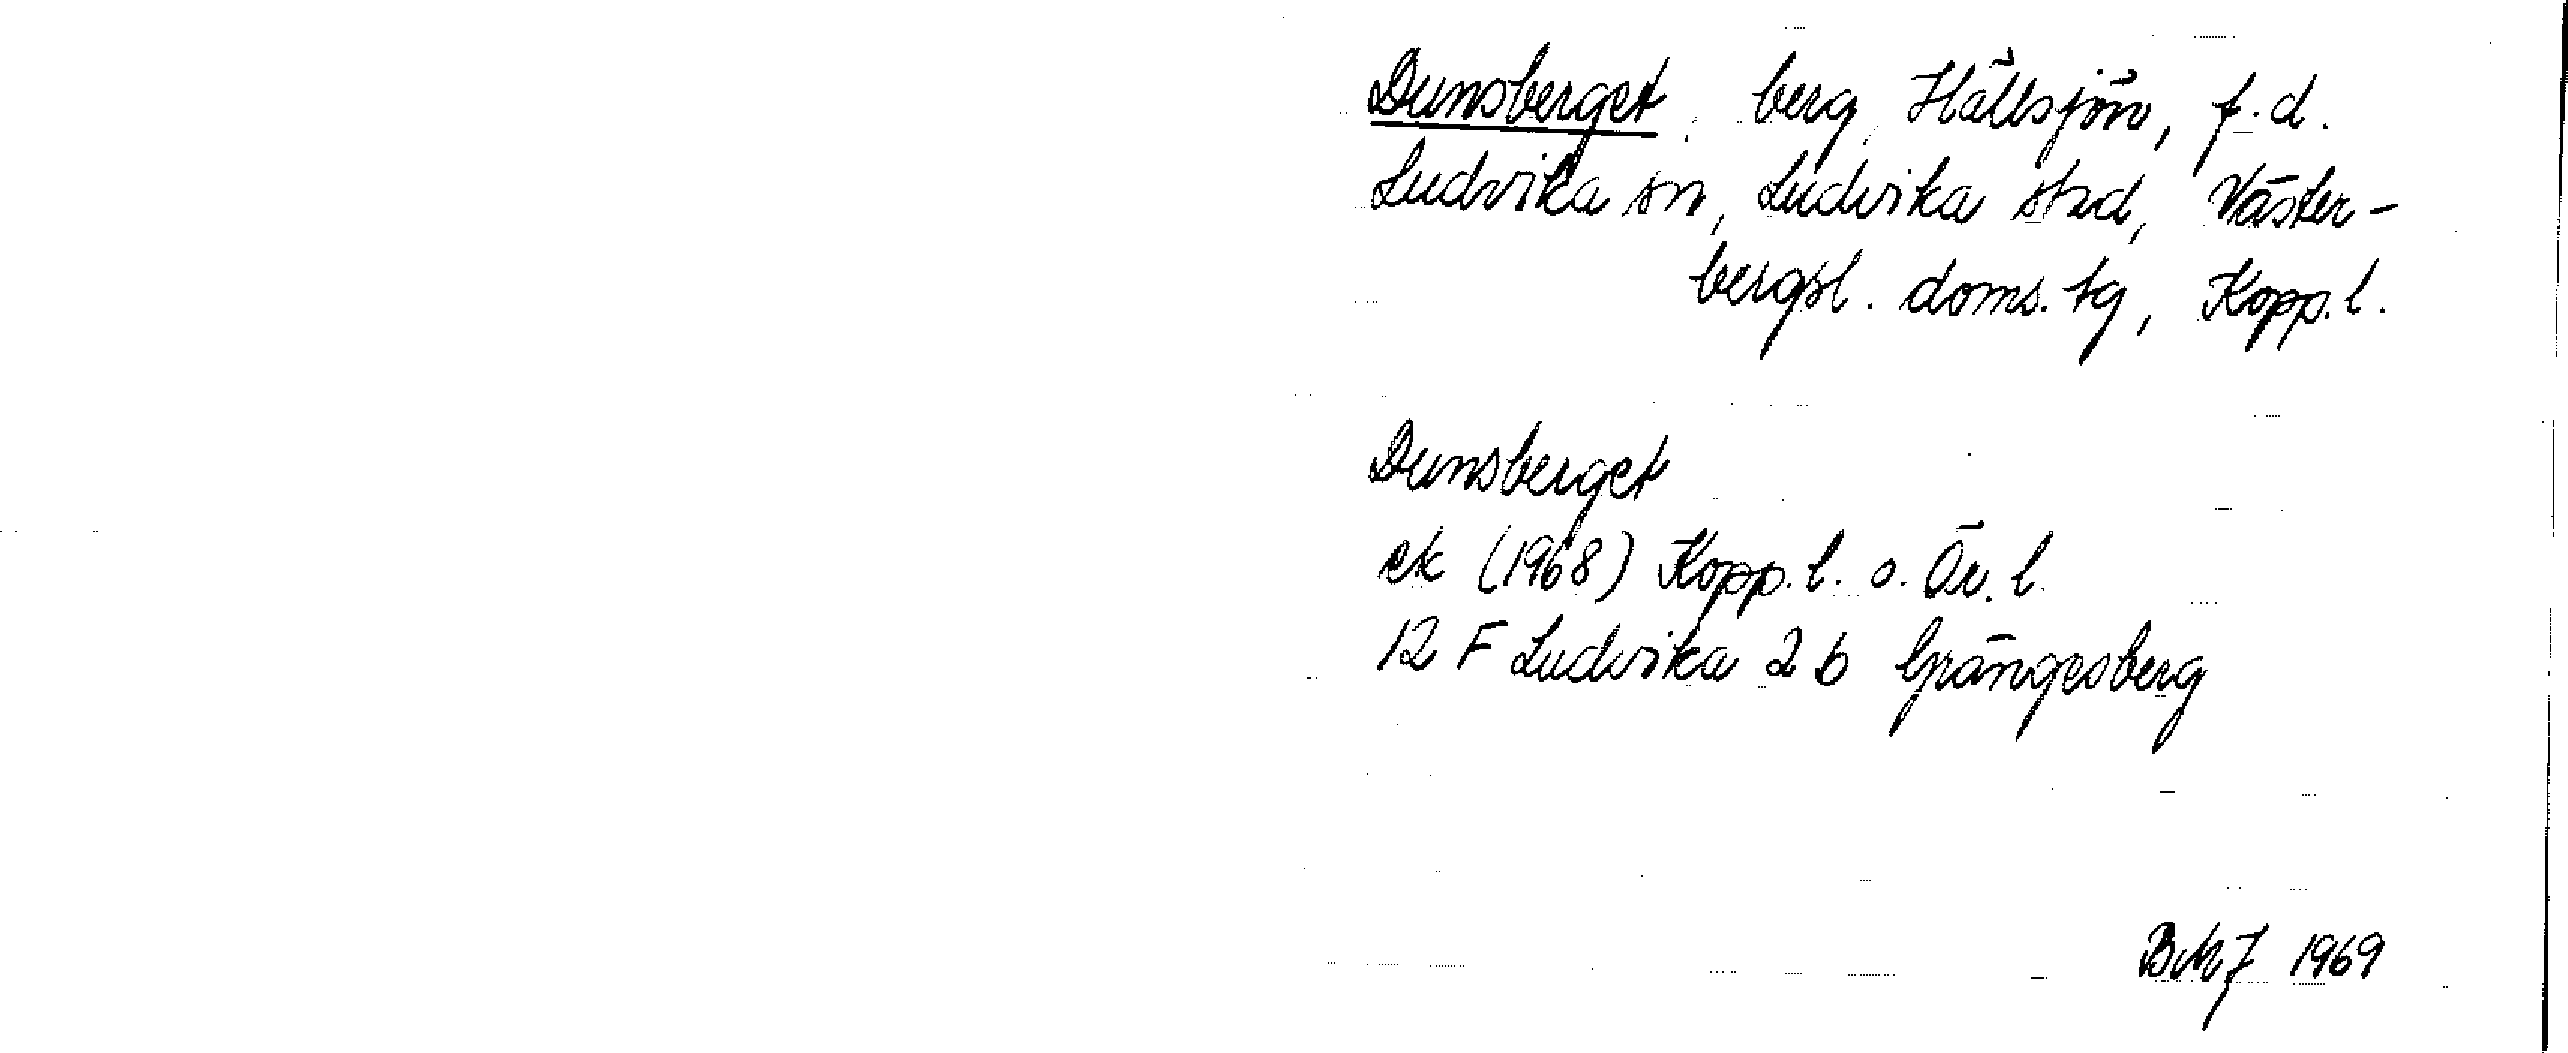 Dunsberget, berg, Hällsjön, f.d.
Ludvika sn, Ludvika stad, Väster-
bergsl. doms. tg, Kopp. l.
Dunsberget
ek (1968) Kopp. l. o. Ör. l.
12 F Ludvika 2 b Grängesberg
1969